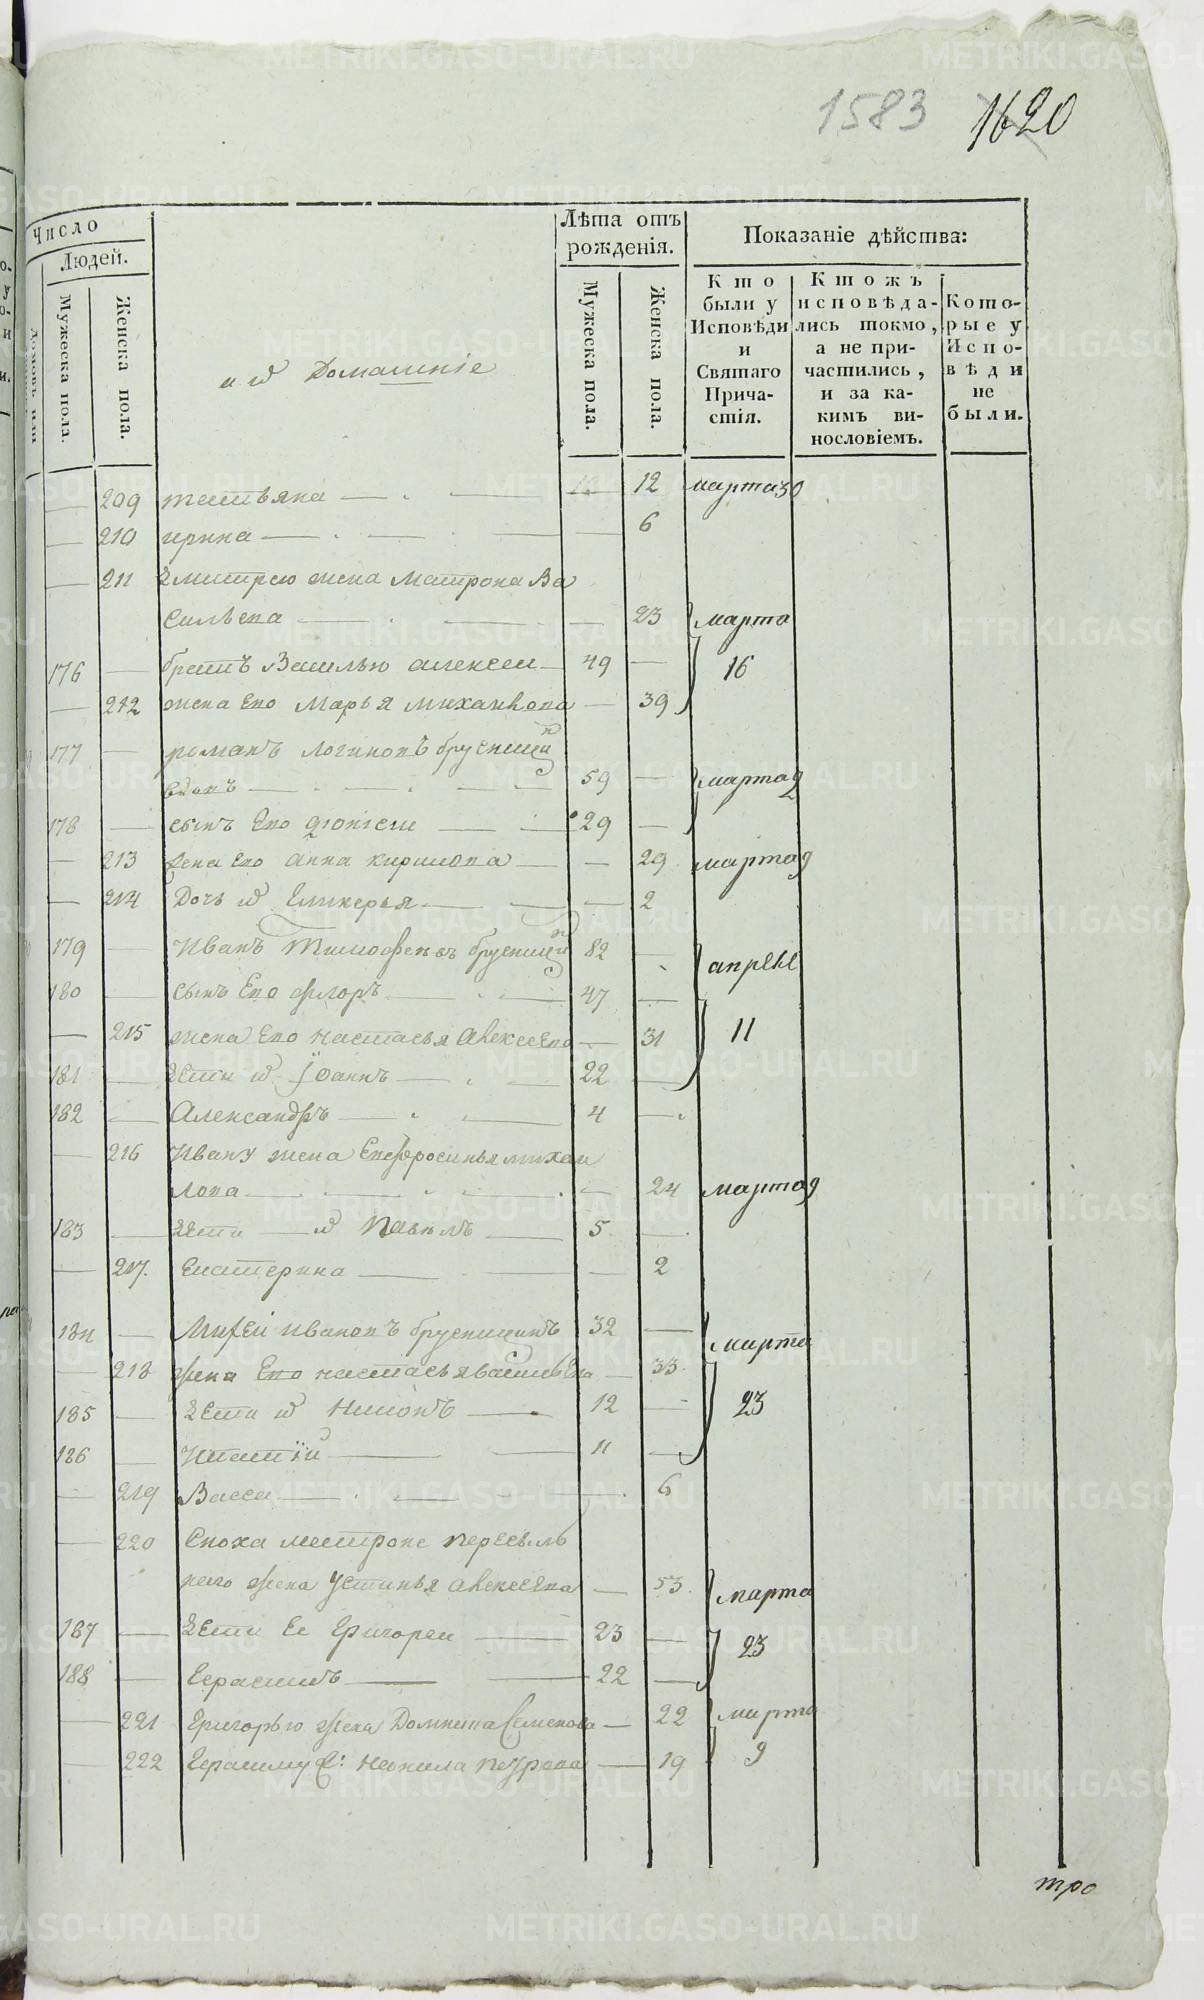 1583 1620
Число
Людей.
Мужеска пола.
Женска пола.
и ѿ Домашніе
Лѣта отъ рожденія.
Мужеска пола.
Женска пола.
Показаніе дѣйства:
Кто были у Исповѣди и Святаго Причастія.
Ктожъ исповѣдались токмо, а не причастились, и за какимъ винословіемъ.
Которые у Исповѣди не были.
209 татьяна 12 марта 30
210 ирина 6
211 Дмитрею жена Матрона Ва
сильева 23 марта
176 братъ Василью алексеи 49 16
212 жена Его Марья михаилова 39
177 романъ логиновъ брусницы
вдовъ 59 марта 9
178 сынъ Его дионисеи 29
213 жена Его анна кирилова 29 марта 9
214 Дочь ихъ Гликерья 2
179 Иванъ Тимофеевъ брусницы 82 апреле
180 сынъ Его флоръ 47
215 жена Его настасья алексеева 31 11
181 Дети ихъ Іоаннъ 22
182 Александръ 4
216 Ивану жена Евфросинья михаи
лова 24 марта 9
183 Дети ихъ Павелъ 5
217. Екатерина 2
184 Михеи ивановъ брусницынъ 32 марта
218 жена Его настасья василева 33
185 Дети ихъ Никонъ 12 23
186 Ипатїй 11
219 Васса 6
220 Сноха матроне пересыль
наго жена Устинья алексеева 53 марта
187 Дети Ее Григореи 23 23
188 Герасимъ 22
221 Григорью жена Домнина Семенова 22 марта
222 Герасиму ж: неонила петрова 19 9
тро
METRIKI.GASO-URAL.RU